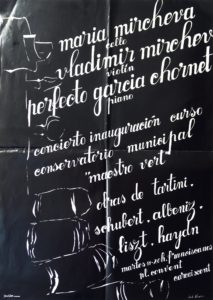 maria mircheva
cello
vladimir mirchev
violin
perfecto garcía chornet
piano
concierto inauguración curso
conservatorio municipal
"maestro vert"
obras de tartini.
schubert. albeniz.
liszt. haydn
martes
franciscanos
pl. convent
carcaixent